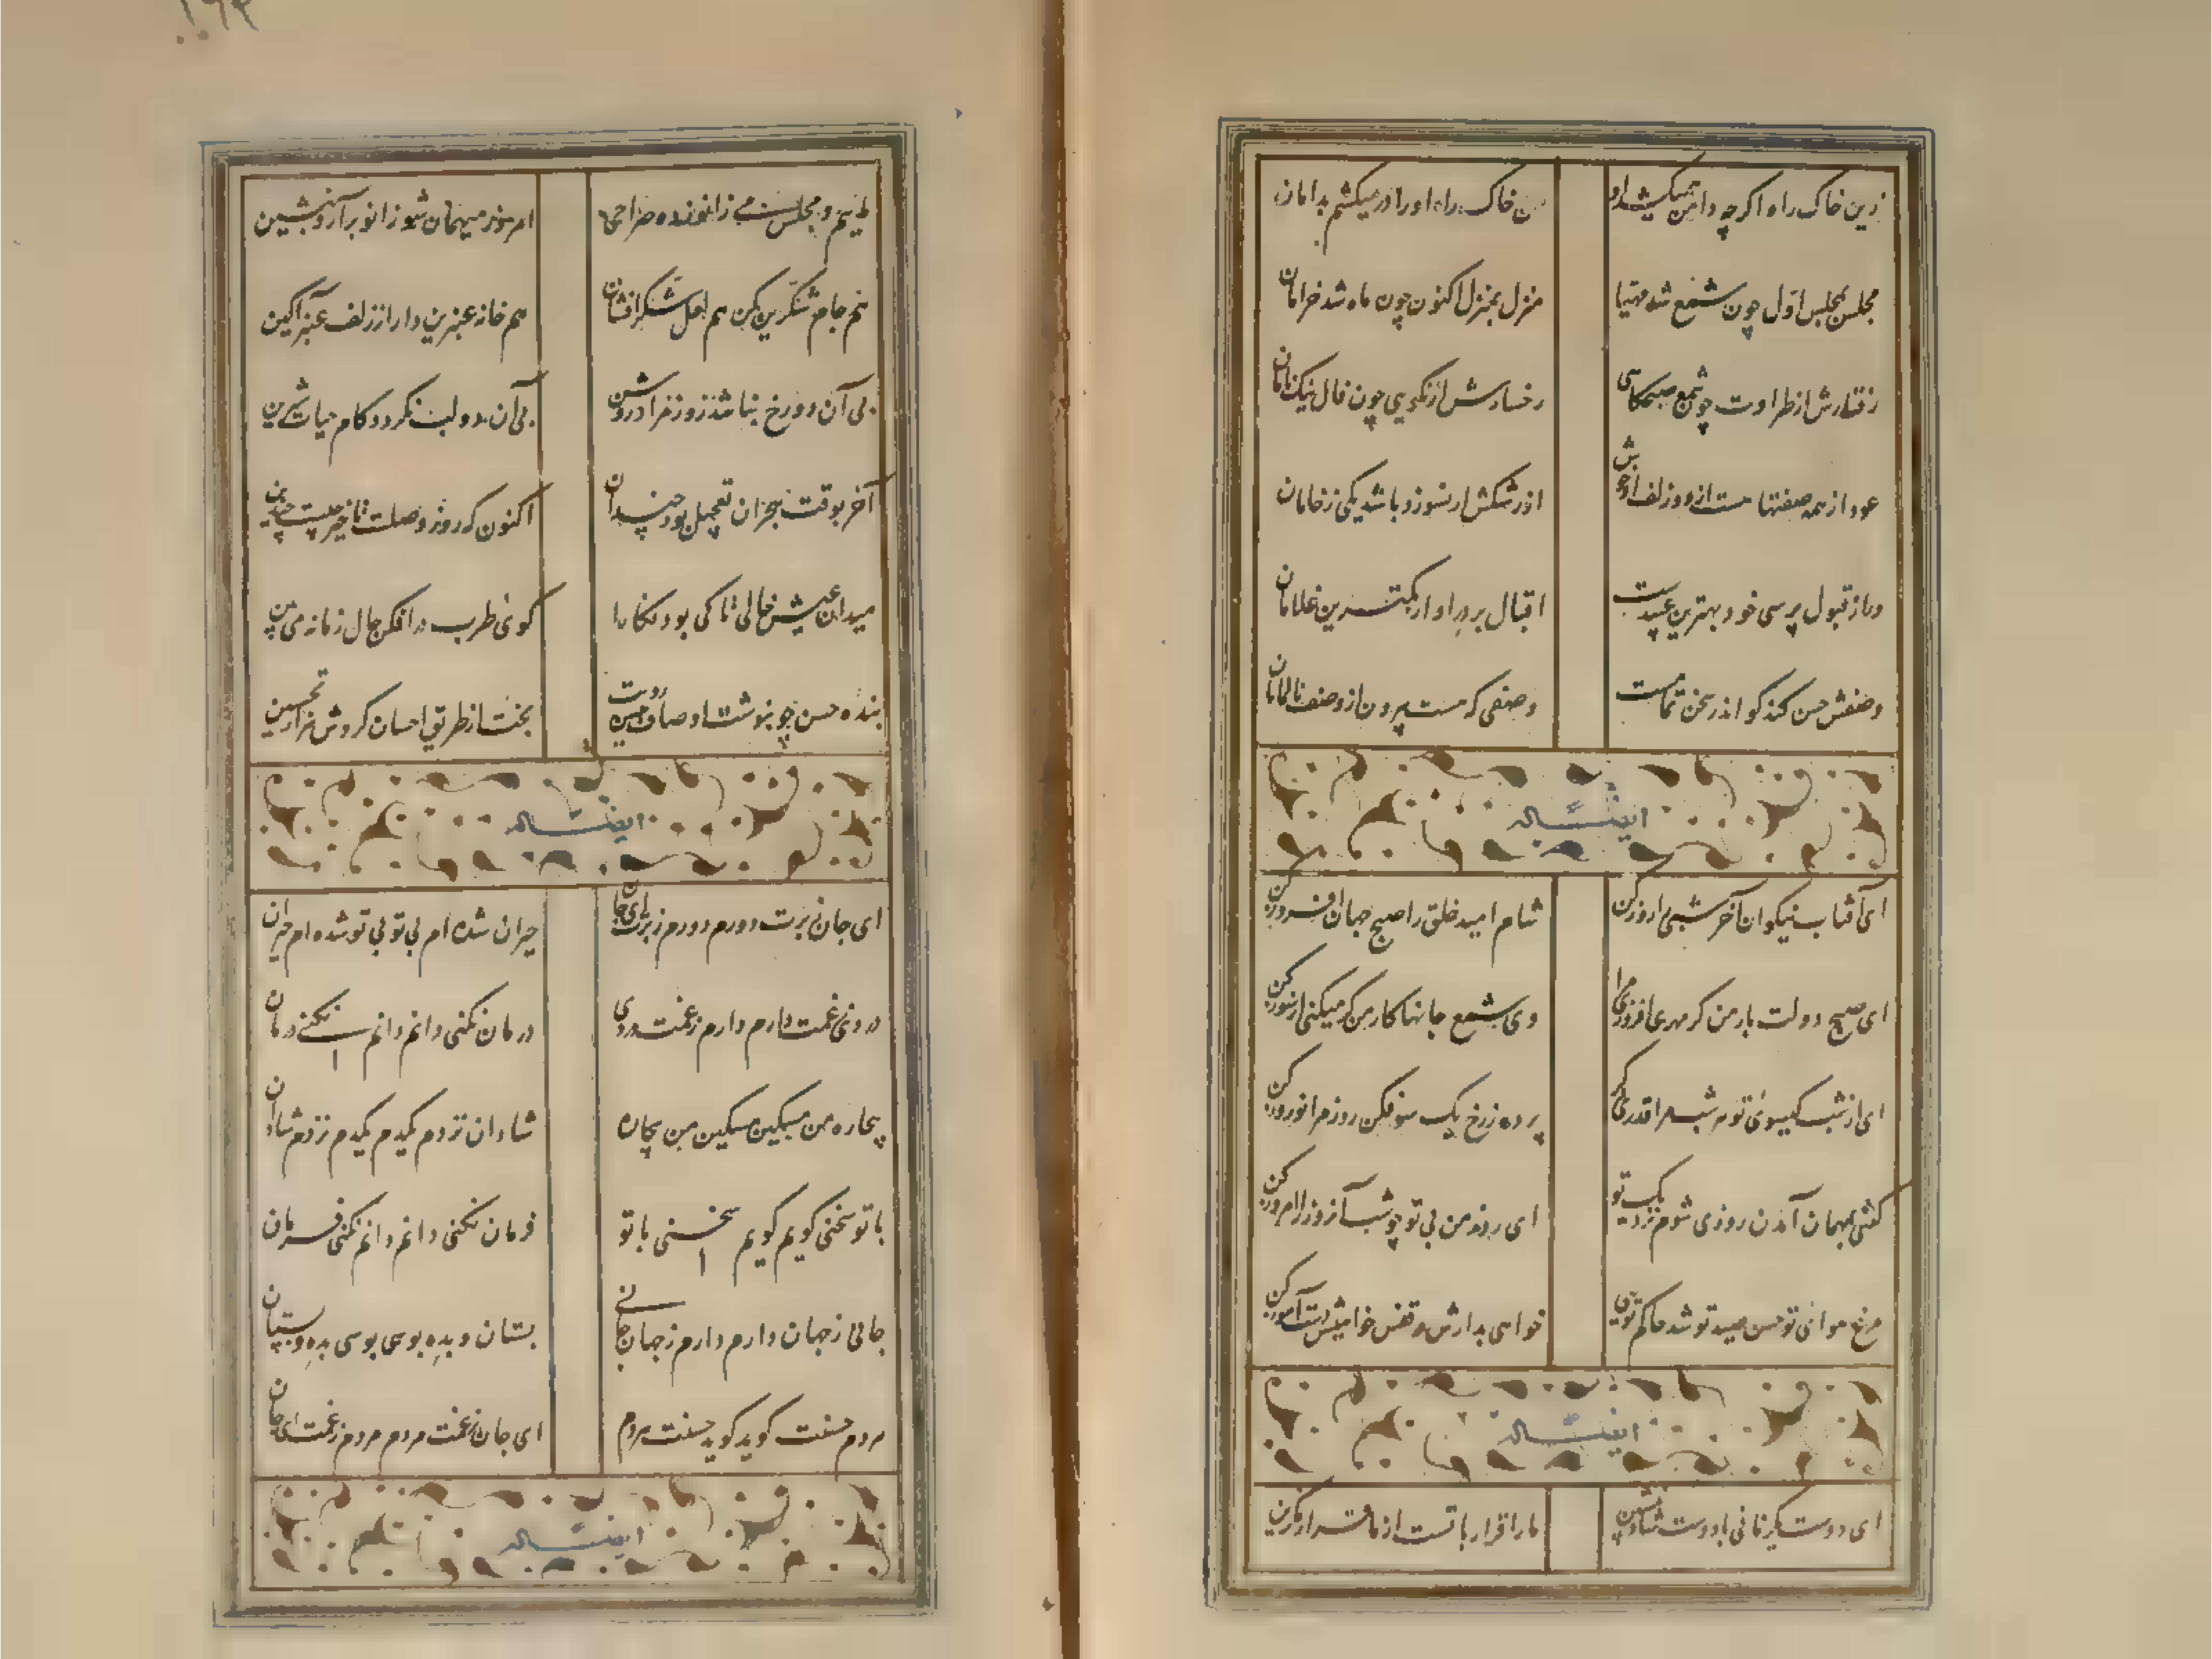 زین خاک راه اگر چه دامن میکشد او
من خاک راه او را در میکشم بدامان
مجلس بمجلس اول چون شمع شد مهیا
منزل بمنزل اکنون چون ماه شد خرامان
رفتارش از طراوت چون شمع صبحکاهی
رخسارش از نکویی چون فال نیک نامان
عود از همه صفتها هست از دو زلف او خوش
از رشکش ار بسوزد باشد یکی ز خامان
اقبال بر در او از کمترین غلامان
وصفش حسن کند کو اندر سخن تمامست
وصفی که هست بیرون از وصف ناتمامان
ایضاً له
ای آفتاب نیکوان آخر شبی را روز کن
شام امید خلق را صبح جهان افروز کن
ای صبح دولت یار من کر مهر می افروزی مرا
وی شمع جانها کار من کر میکنی از سوز کن
ای از شب کیسوی تو هر شب مرا قدری دکر
پرده ز رخ یک سو فکن روز مرا نوروز کن
کفتی بمهمان آمدن روزی شوم نزدیک تو
ای روز من بی تو چو شب آن روز را امروز کن
مرغ هوائی تو حسن صید تو شد حاکم توئی
خواهی بدارش در قفس خواهیش دست آموز کن
ایضاً له
ای دوست کر زمانی با دوست شاد بنشین
ما را قرار با تست از ما قرار مکزین
مائیم و مجلس می زانو زده صراحی
امروز میهمان شو زانو برآر و بنشین
هم جام شکرین کن هم لعل شکر افشان
هم خانه عنبرین دار از زلف عنبر آکین
بی آن دو رخ نباشد روز مراد روشن
بی آن دو لب نکردد کام حیات شیرین
آخر بوقت هجران تعجیل بود چندان
اکنون که روز وصلت تاخیر چیست چندین
میدان عیش خالی تا کی بود نکارا
کوی طرب در افکن حال زمانه می بین
بنده حسن چو بنوشت اوصاف حسن رویت
بخت از طریق احسان کردش هزار تحسین
ایضاً له
ای جان ز برت دورم دورم ز برت ای جان
حیران شده ام بی تو بی تو شده ام حیران
دردی ز غمت دارم دارم ز غمت دردی
درمان نکنی دانم دانم نکنی درمان
بیچاره من مسکین مسکین من بیچاره
شادان نزدم یکدم یکدم نزدم شادان
با تو سخنی کویم کویم سخنی با تو
فرمان نکنی دانم دانم نکنی فرمان
جانی ز جهان دارم دارم ز جهان جانی
بستان و بده بوسی بوسی بده و بستان
مردم حسنت کوید کوید حسنت مردم
ای جان ز غمت مردم مردم ز غمت ای جان
ایضاً له